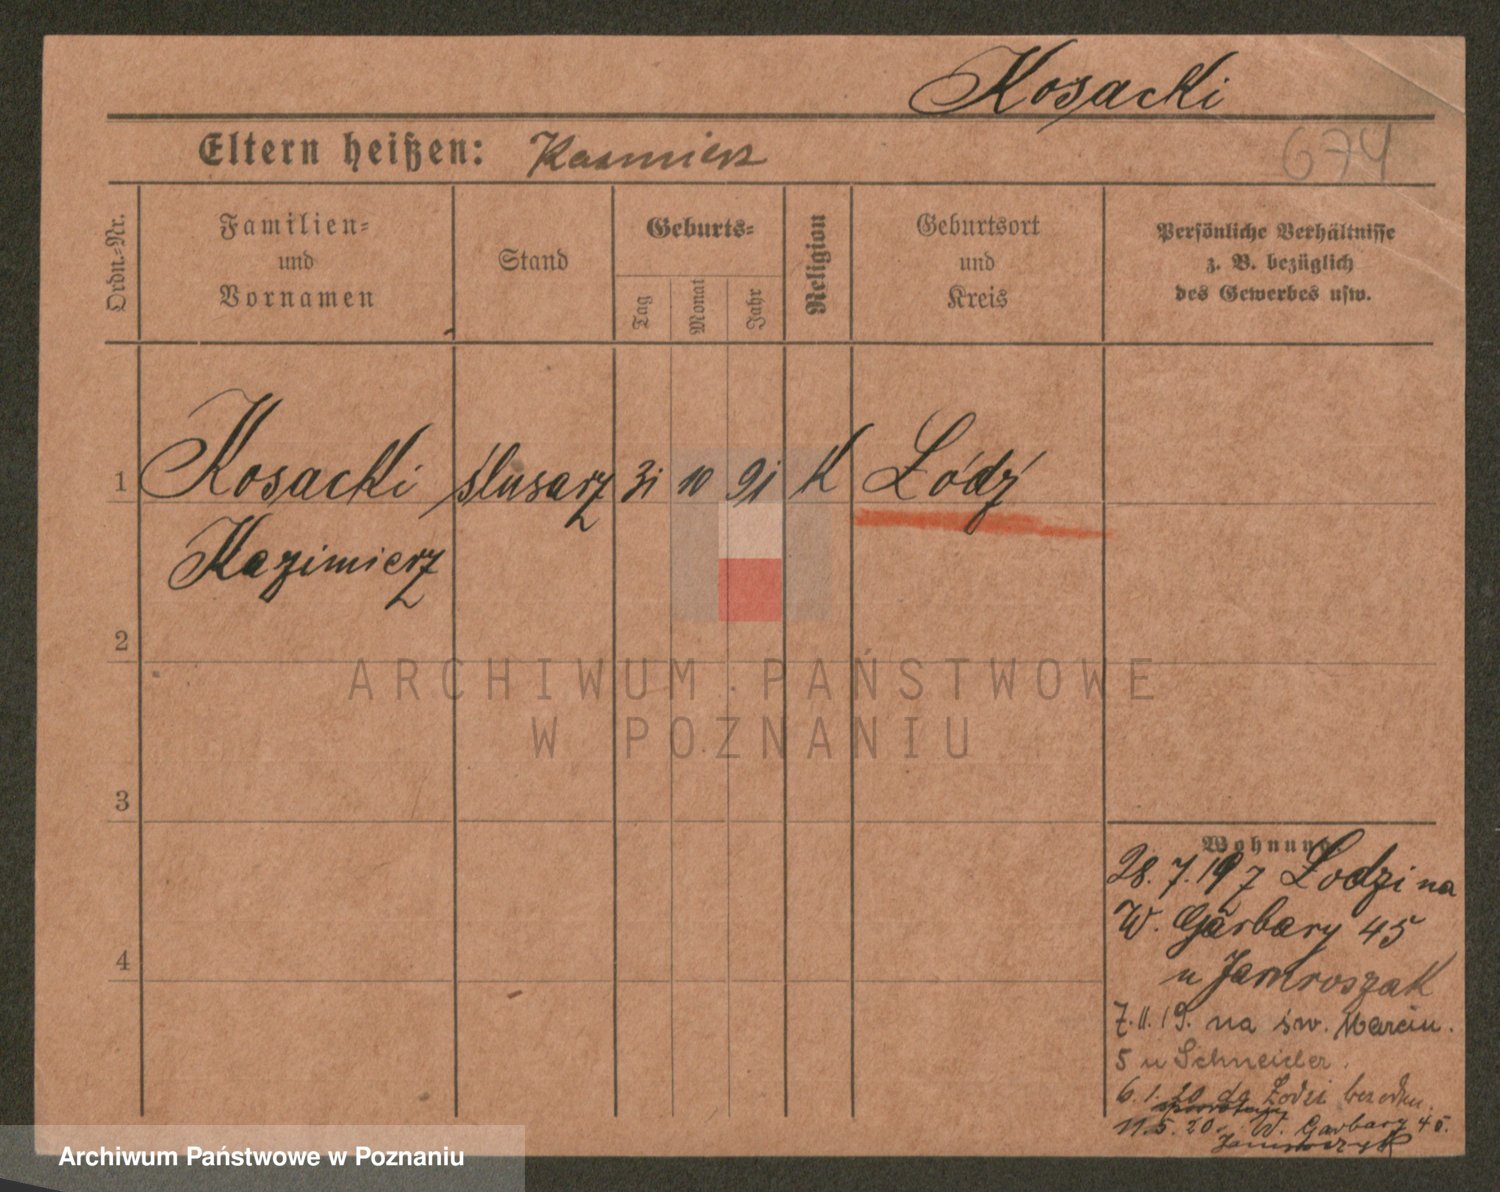 Kosacki
Eltern heißen: Kasmierz
674
Ordn.-Nr.
Familien-
und
Vornamen
Stand
Geburts-
Tag
Monat
Jahr
Religion
Geburtsort
und
Kreis
Persönliche Verhältnisse
z. B. bezüglich
des Gewerbes usw.
1 Kosacki ślusarz 31 10 91 K Łódź
Kazimierz
2
3
4
ARCHIWUM PAŃSTWOWE
W POZNANIU
Wohnung.
28. 7. 19 z Łodzi na
W. Garbary 45
u Jamroszak
7. 11. 19. na św. Marcin.
5 u Schneider.
6. 1. 20 do Łodzi bez odm.
11. 5. 20. W. Garbary 45.
Archiwum Państwowe w Poznaniu